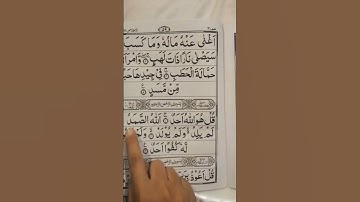 اَغْنٰى عَنْهُ مَالُهٗ وَمَا كَسَبَ
سَيَصْلٰى نَارًا ذَاتَ لَهَبٍ وَّامْرَا
حَمَّالَةَ الْحَطَبِ فِيْ جِيْدِهَا حَبْ
مِّنْ مَّسَدٍ
قُلْ هُوَ اللّٰهُ اَحَدٌ اَللّٰهُ الصَّمَدُ
لَمْ يَلِدْ وَلَمْ يُوْلَدْ وَلَمْ
لَّهٗ كُفُوًا اَحَدٌ
قُلْ اَعُوْذُ بِرَبِّ